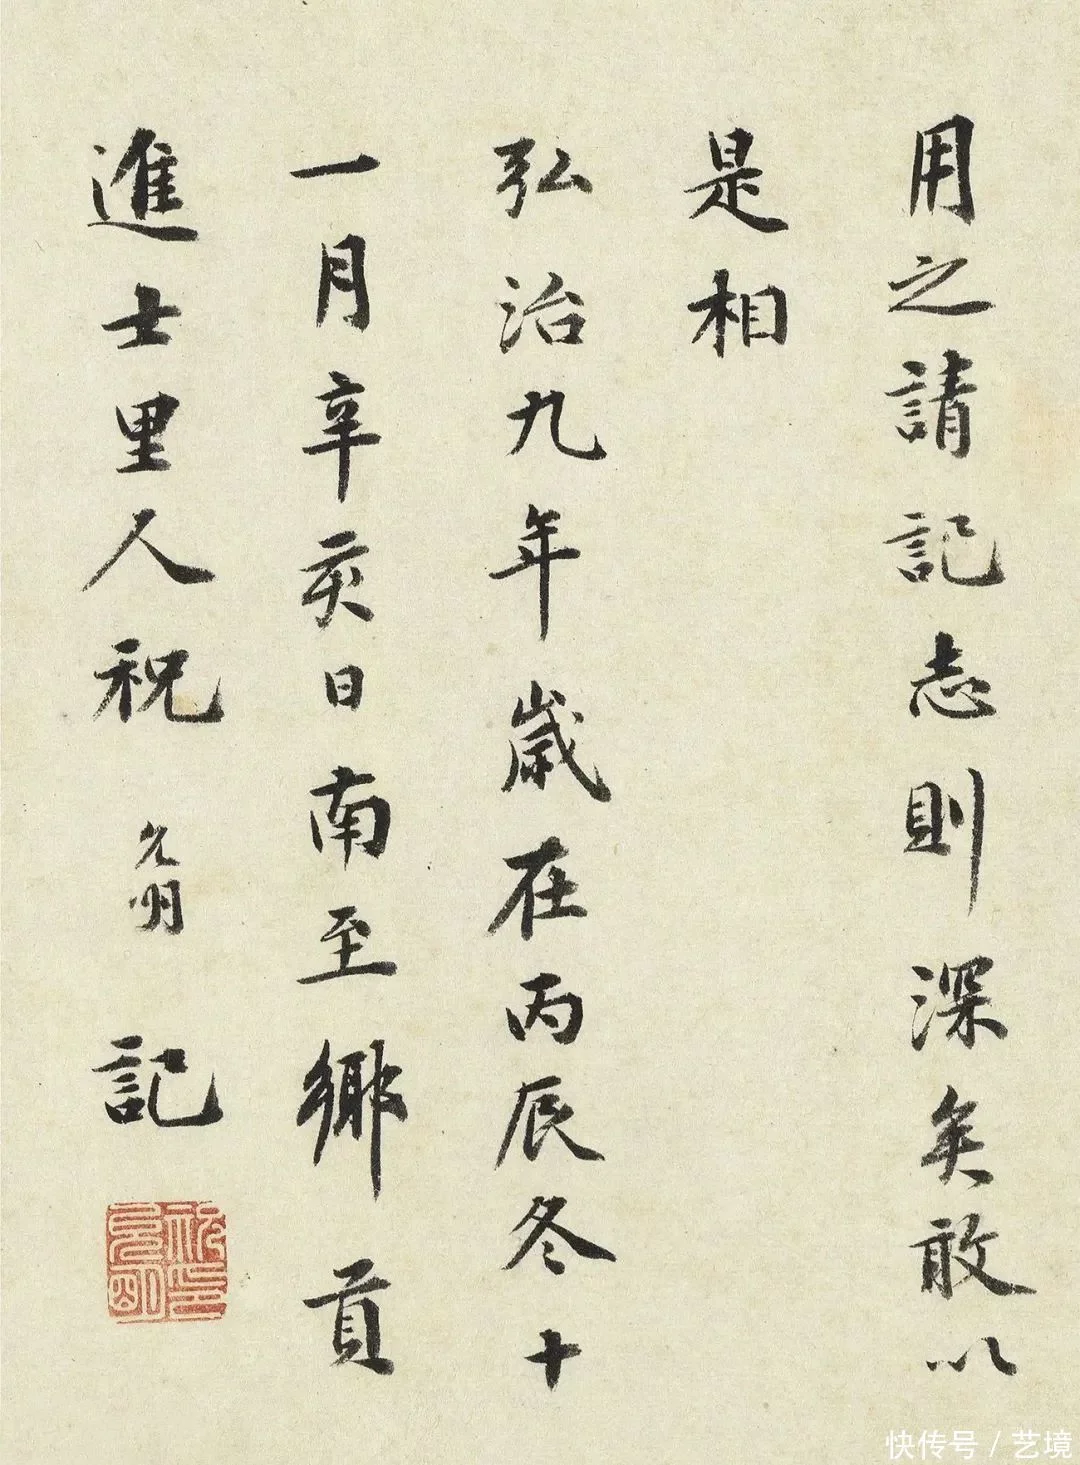 用之請記志則深矣敢以
是相
弘治九年歲在丙辰冬十
一月辛亥日南至鄉貢
進士里人祝允明記
祝允明印
快传号/艺境